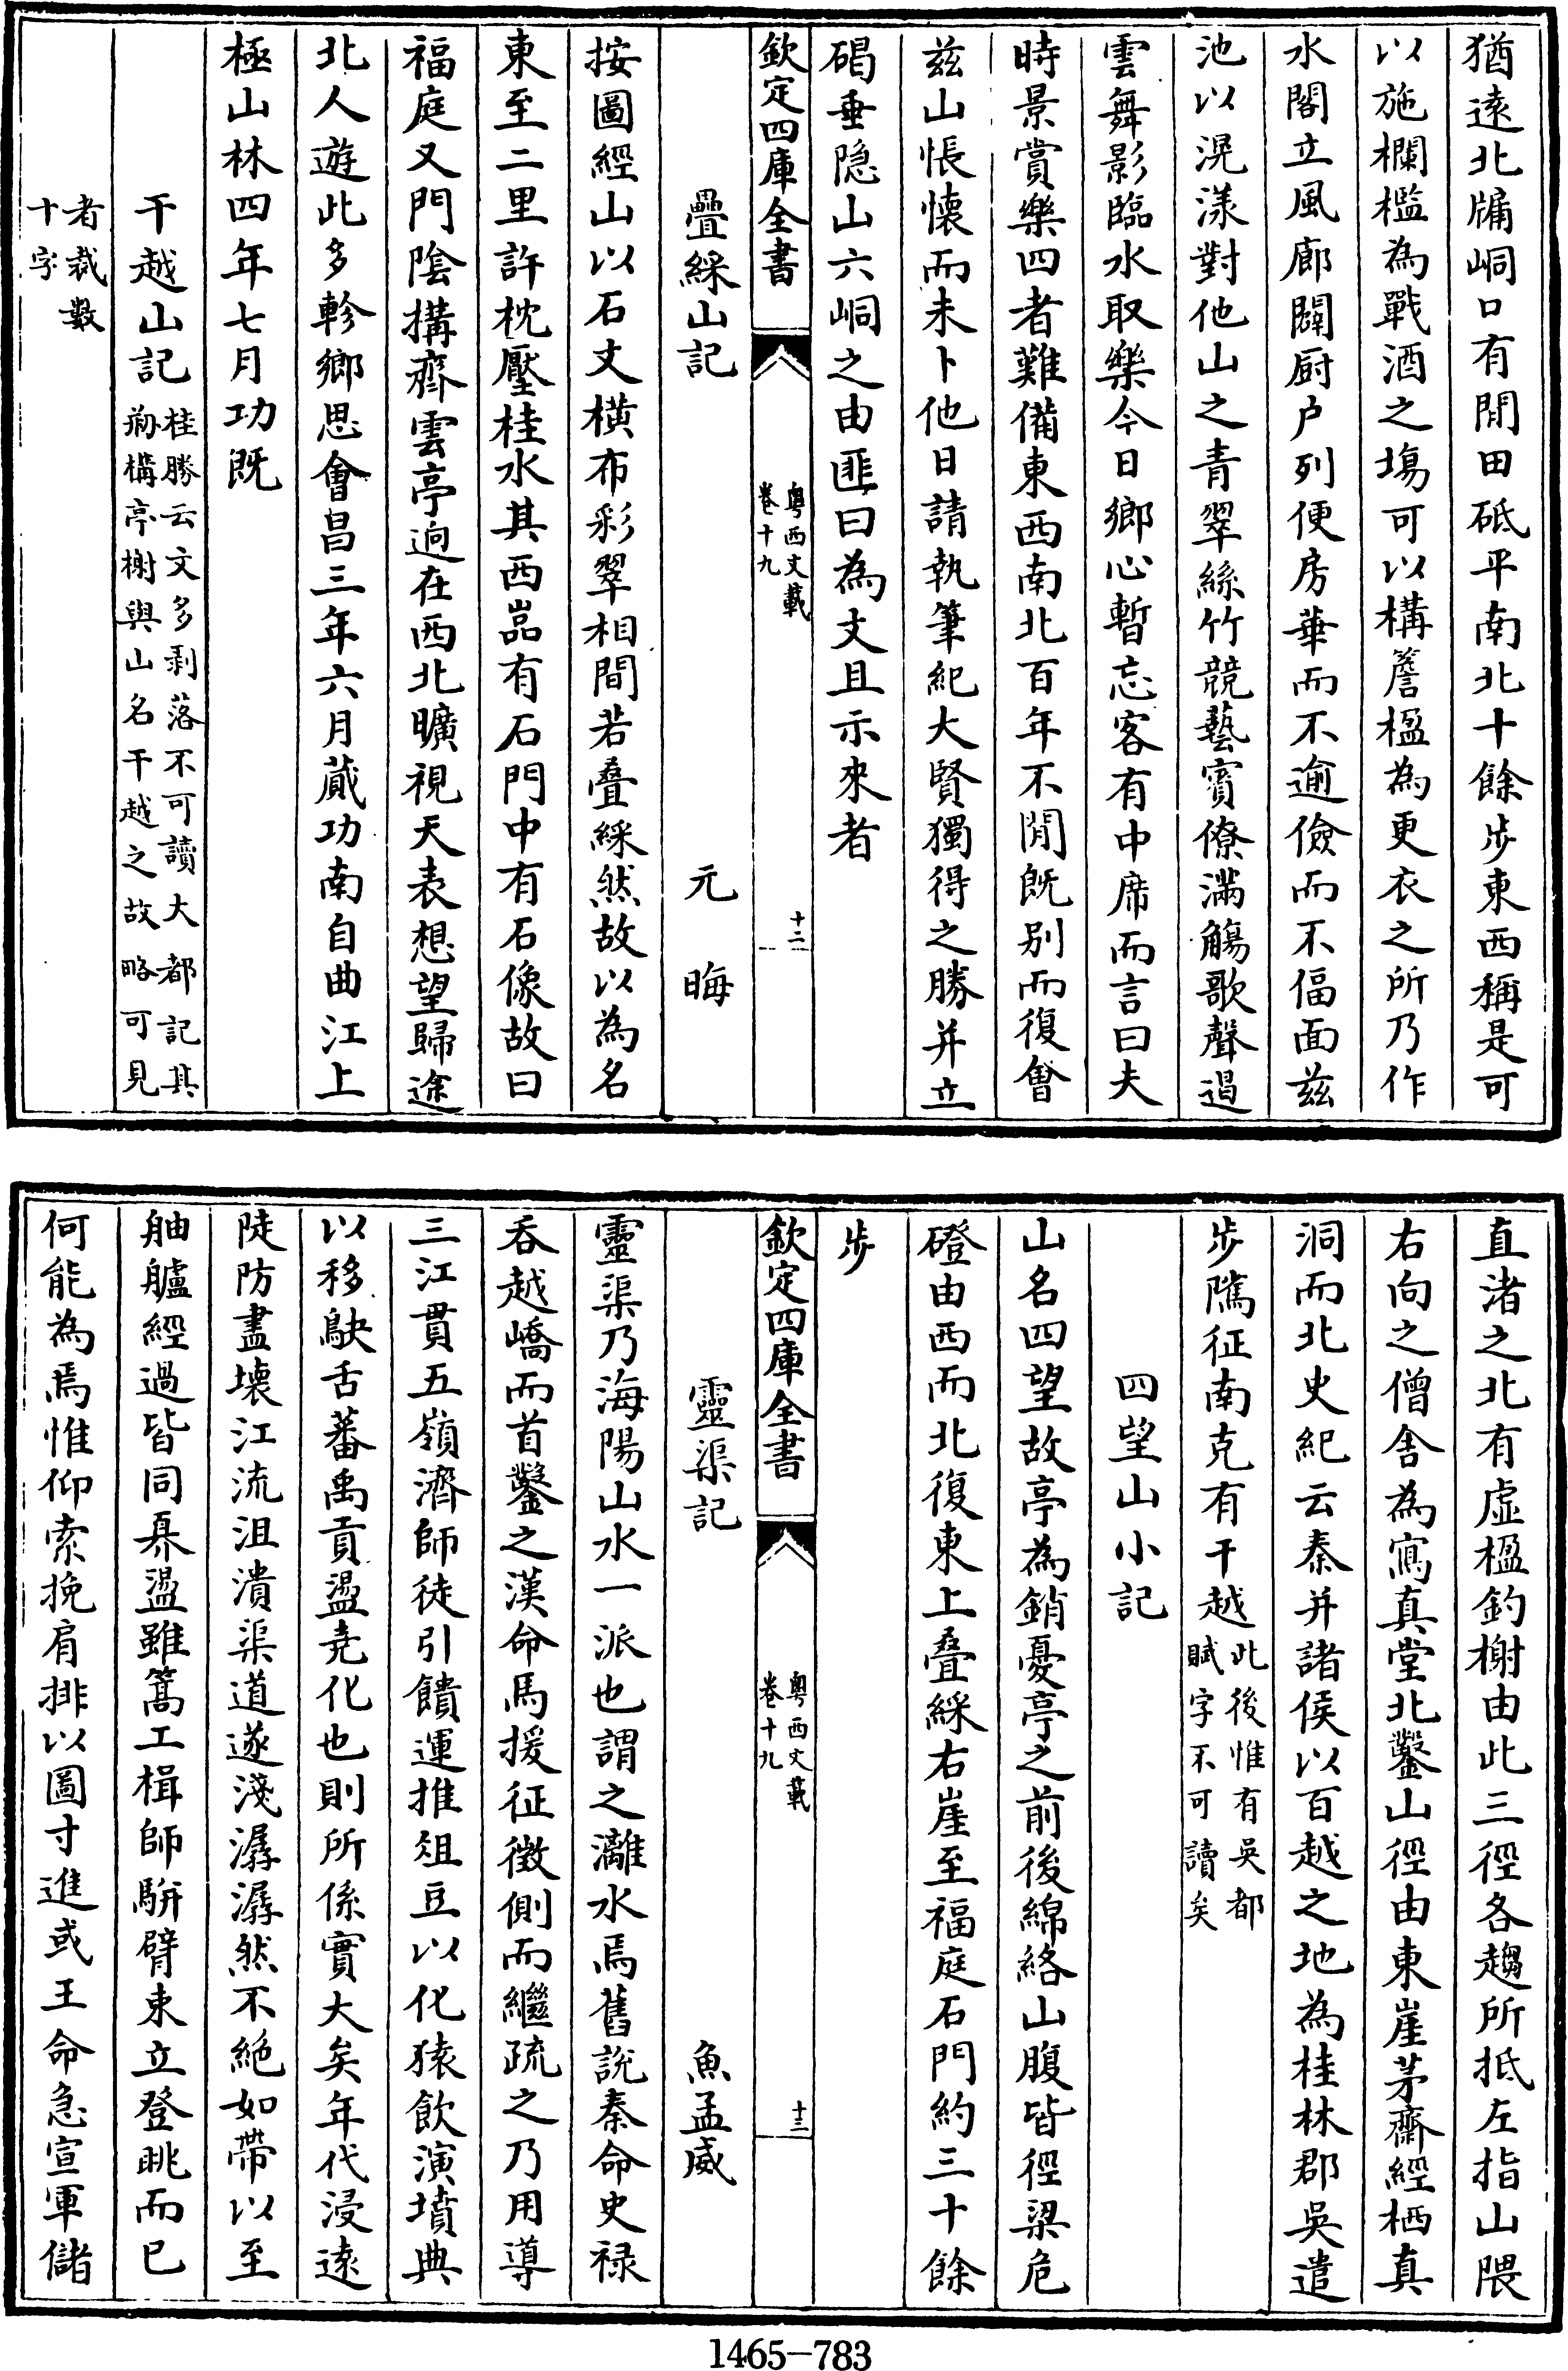 猶遠北牖峒口有閒田砥平南北十餘步東西稱是可
以施欄檻為戰酒之塲可以構簷楹為更衣之所乃作
水閣立風廊闢厨户列便房華而不逾儉而不偪面兹
池以滉漾對他山之青翠絲竹競藝賓僚滿觴歌聲遏
雲舞影臨水取樂今日鄉心暫忘客有中席而言曰夫
時景賞樂四者難備東西南北百年不閒既别而復會
兹山悵懷而未卜他日請執筆紀大賢獨得之勝并立
碣垂隐山六峒之由匪曰為文且示來者
欽定四庫全書
粤西文載
卷十九
十二
疊綵山記 元晦
按圖經山以石文横布彩翠相間若叠綵然故以為名
東至二里許枕壓桂水其西嵓有石門中有石像故曰
福庭又門隂搆齊雲亭逈在西北曠視天表想望歸途
北人遊此多軫鄉思會昌三年六月蕆功南自曲江上
極山林四年七月功既
干越山記桂勝云文多剥落不可讀大都記其
剏構亭榭與山名干越之故略可見
者裁數
十字
直渚之北有虚楹釣榭由此三徑各趨所抵左指山隈
右向之僧舍為寫真堂北鑿山徑由東崖茅齋經栖真
洞而北史紀云秦并諸侯以百越之地為桂林郡吳遣
步隲征南克有干越此後惟有吳都
賦字不可讀矣
四望山小記
山名四望故亭為銷憂亭之前後綿絡山腹皆徑梁危
磴由西而北復東上叠綵右崖至福庭石門約三十餘
步
欽定四庫全書
粤西文載
卷十九
十三
靈渠記 魚孟威
靈渠乃海陽山水一派也謂之灕水焉舊說秦命史禄
吞越嶠而首鑿之漢命馬援征徵側而繼疏之乃用導
三江貫五嶺濟師徒引饋運推俎豆以化猿飲演墳典
以移鴃舌蕃禹貢盪堯化也則所係實大矣年代浸遠
陡防盡壊江流沮潰渠道遂淺潺潺然不絶如帶以至
舳艫經過皆同奡盪雖篙工楫師駢臂束立登眺而已
何能為焉惟仰索挽肩排以圖寸進或王命急宣軍儲
1465-783